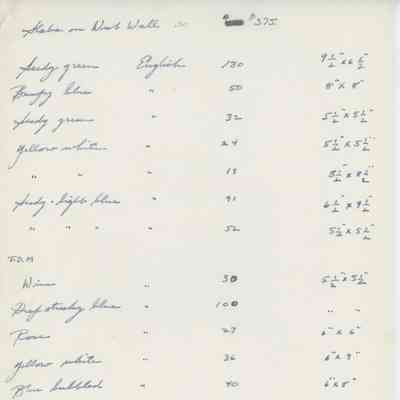 Slabs on West Wall #37I
Seedy green English 130 9 1/2" x 6 1/2"
Bumpy blue " 50 8" x 8"
Seedy green " 32 5 1/2" x 5 1/2"
Yellow white " 24 5 1/2" x 5 1/2"
" " " 13 8 1/2" x 8 1/2"
Seedy - light blue " 91 6 1/2" x 9 1/2"
" " " " 52 5 1/2" x 5 1/2"
Wine " 30 5 1/2" x 5 1/2"
Deep streaky blue " 100 " "
Rose " 27 6" x 6"
Yellow white " 36 6" x 9"
Blue bubbled " 40 6" x 8"